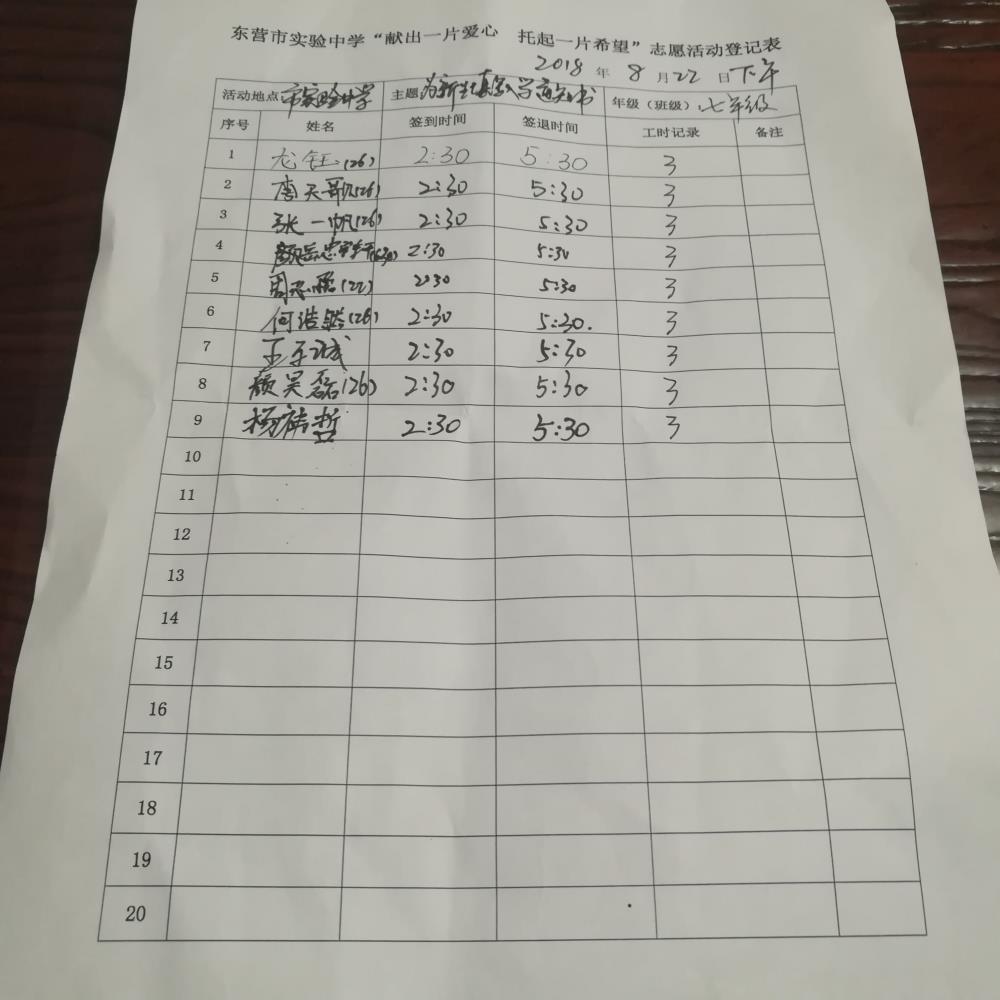 东营市实验中学“献出一片爱心 托起一片希望”志愿活动登记表
2018 年 8 月 22 日 下午
活动地点 市实验中学 主题 为新生填写入学通知书 年级（班级）：七年级
序号 姓名 签到时间 签退时间 工时记录 备注
1 龙钰(26) 2:30 5:30 3
2 唐天歌(26) 2:30 5:30 3
3 张一帆(26) 2:30 5:30 3
4 2:30 5:30 3
5 2:30 5:30 3
6 何浩然(26) 2:30 5:30. 3
7 王子诚 2:30 5:30 3
8 颜昊磊(26) 2:30 5:30 3
9 杨祎哲 2:30 5:30 3
10
11
12
13
14
15
16
17
18
19
20